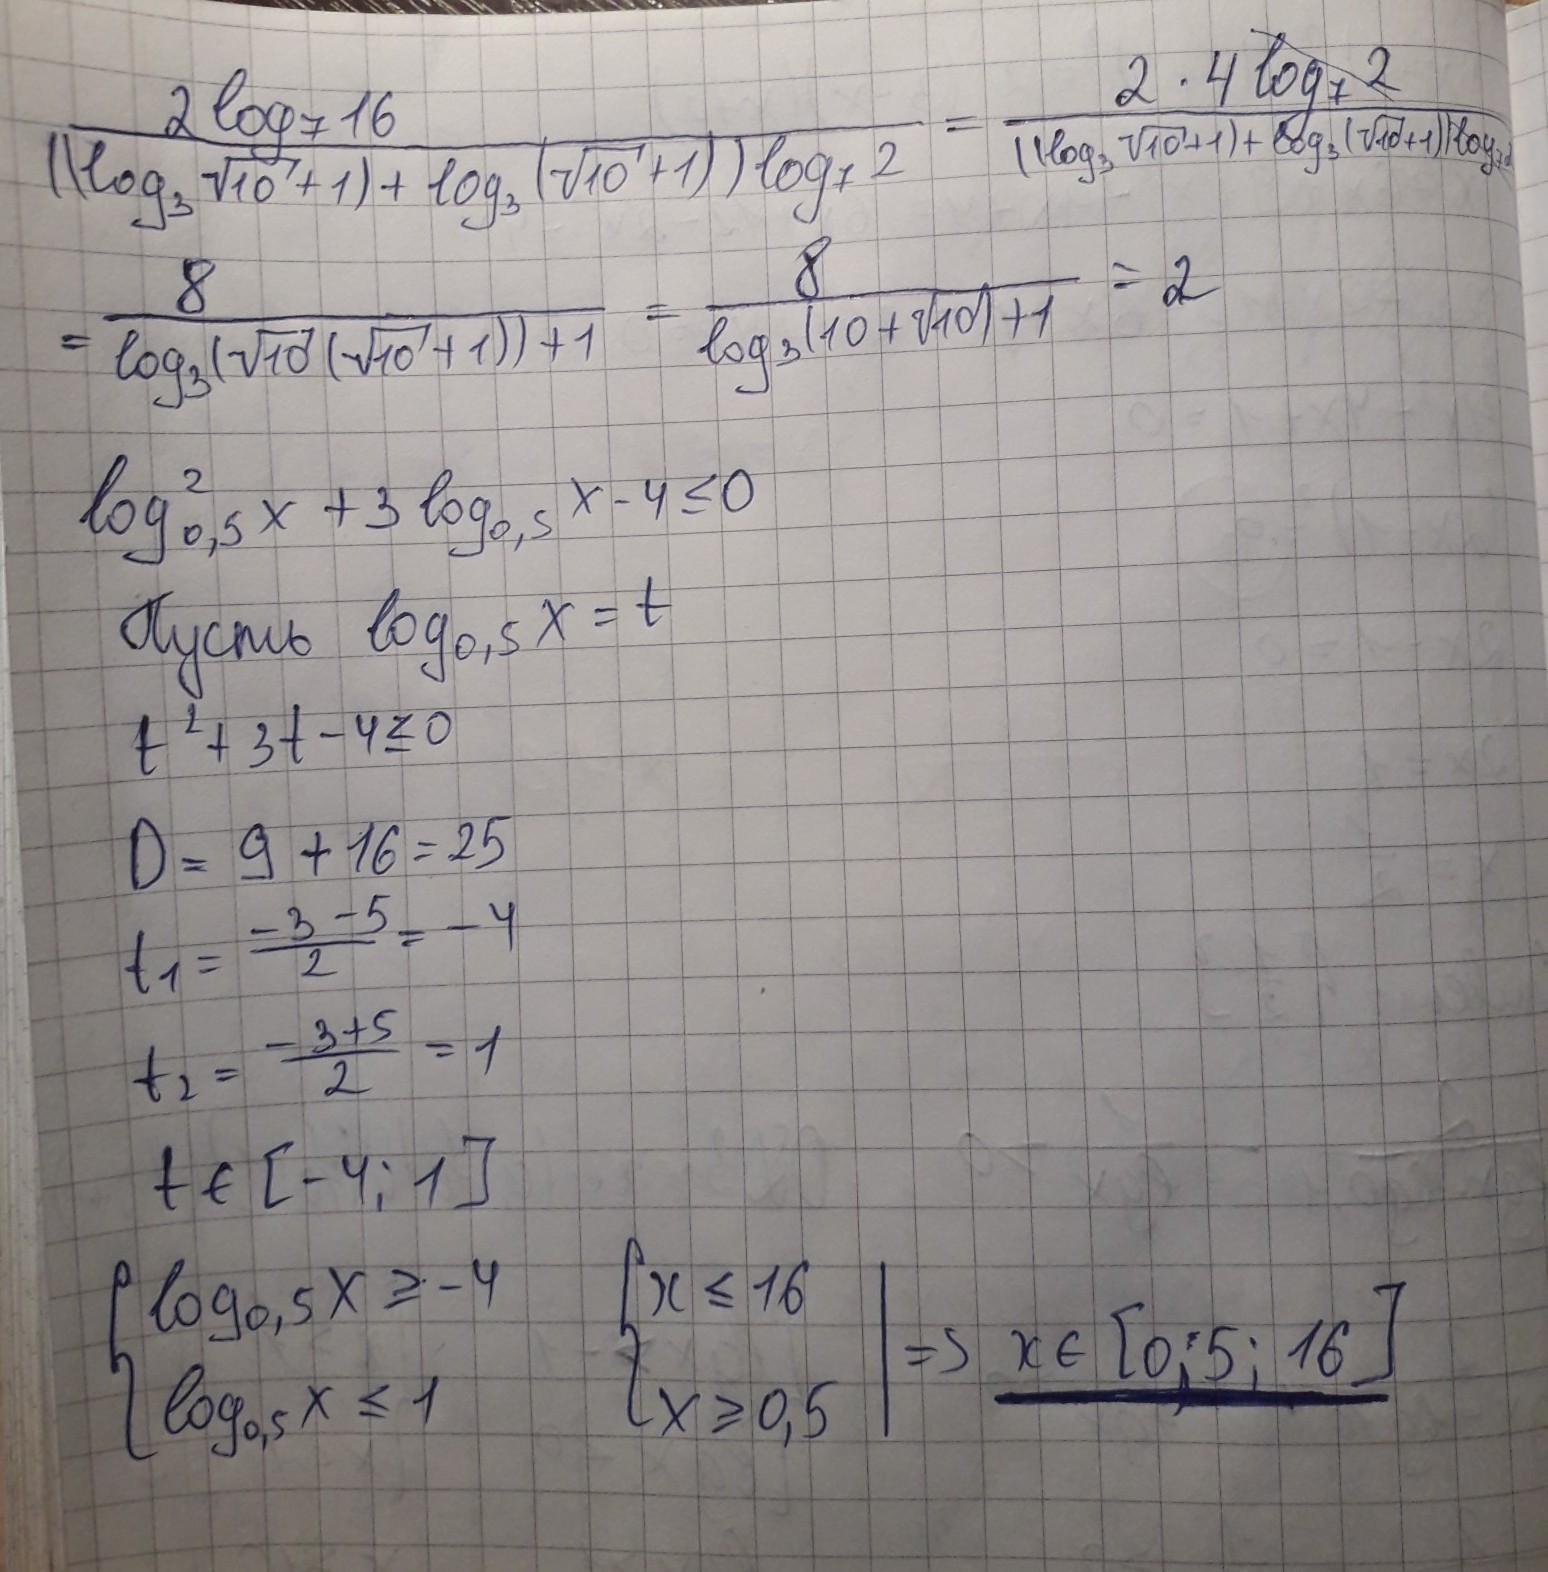 2log₇16 / ((log₃√10+1)+log₃(√10+1))log₇2 = 2·4log₇2 / ((log₃√10+1)+log₃(√10+1))log₇2
= 8 / log₃(√10(√10+1))+1 = 8 / log₃(10+√10)+1 = 2
log²₀,₅x+3log₀,₅x-4≤0
Пусть log₀,₅x=t
t²+3t-4≤0
D=9+16=25
t₁=(-3-5)/2=-4
t₂=(-3+5)/2=1
t∈[-4;1]
{log₀,₅x≥-4 {x≤16 | => x∈[0,5;16]
{log₀,₅x≤1 {x≥0,5 |